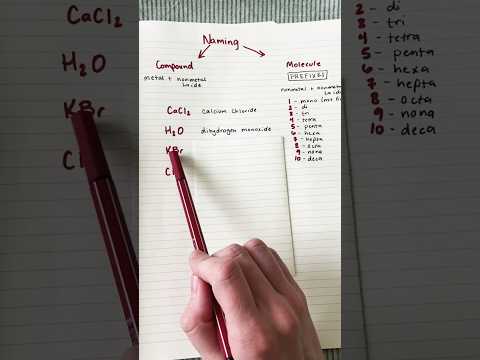 CaCl₂
H₂O
KBr
Naming
Compound
metal + nonmetal
↳ ide
CaCl₂ calcium chloride
H₂O dihydrogen monoxide
KBr
Molecule
PREFIXES
nonmetal +
↳ ide
1 - mono (not
2 - di
3 - tri
4 - tetra
5 - penta
6 - hexa
7 - hepta
8 - octa
9 - nona
10 - deca
2 - di
3 - tri
4 - tetra
5 - penta
6 - hexa
7 - hepta
8 - octa
9 - nona
10 - deca